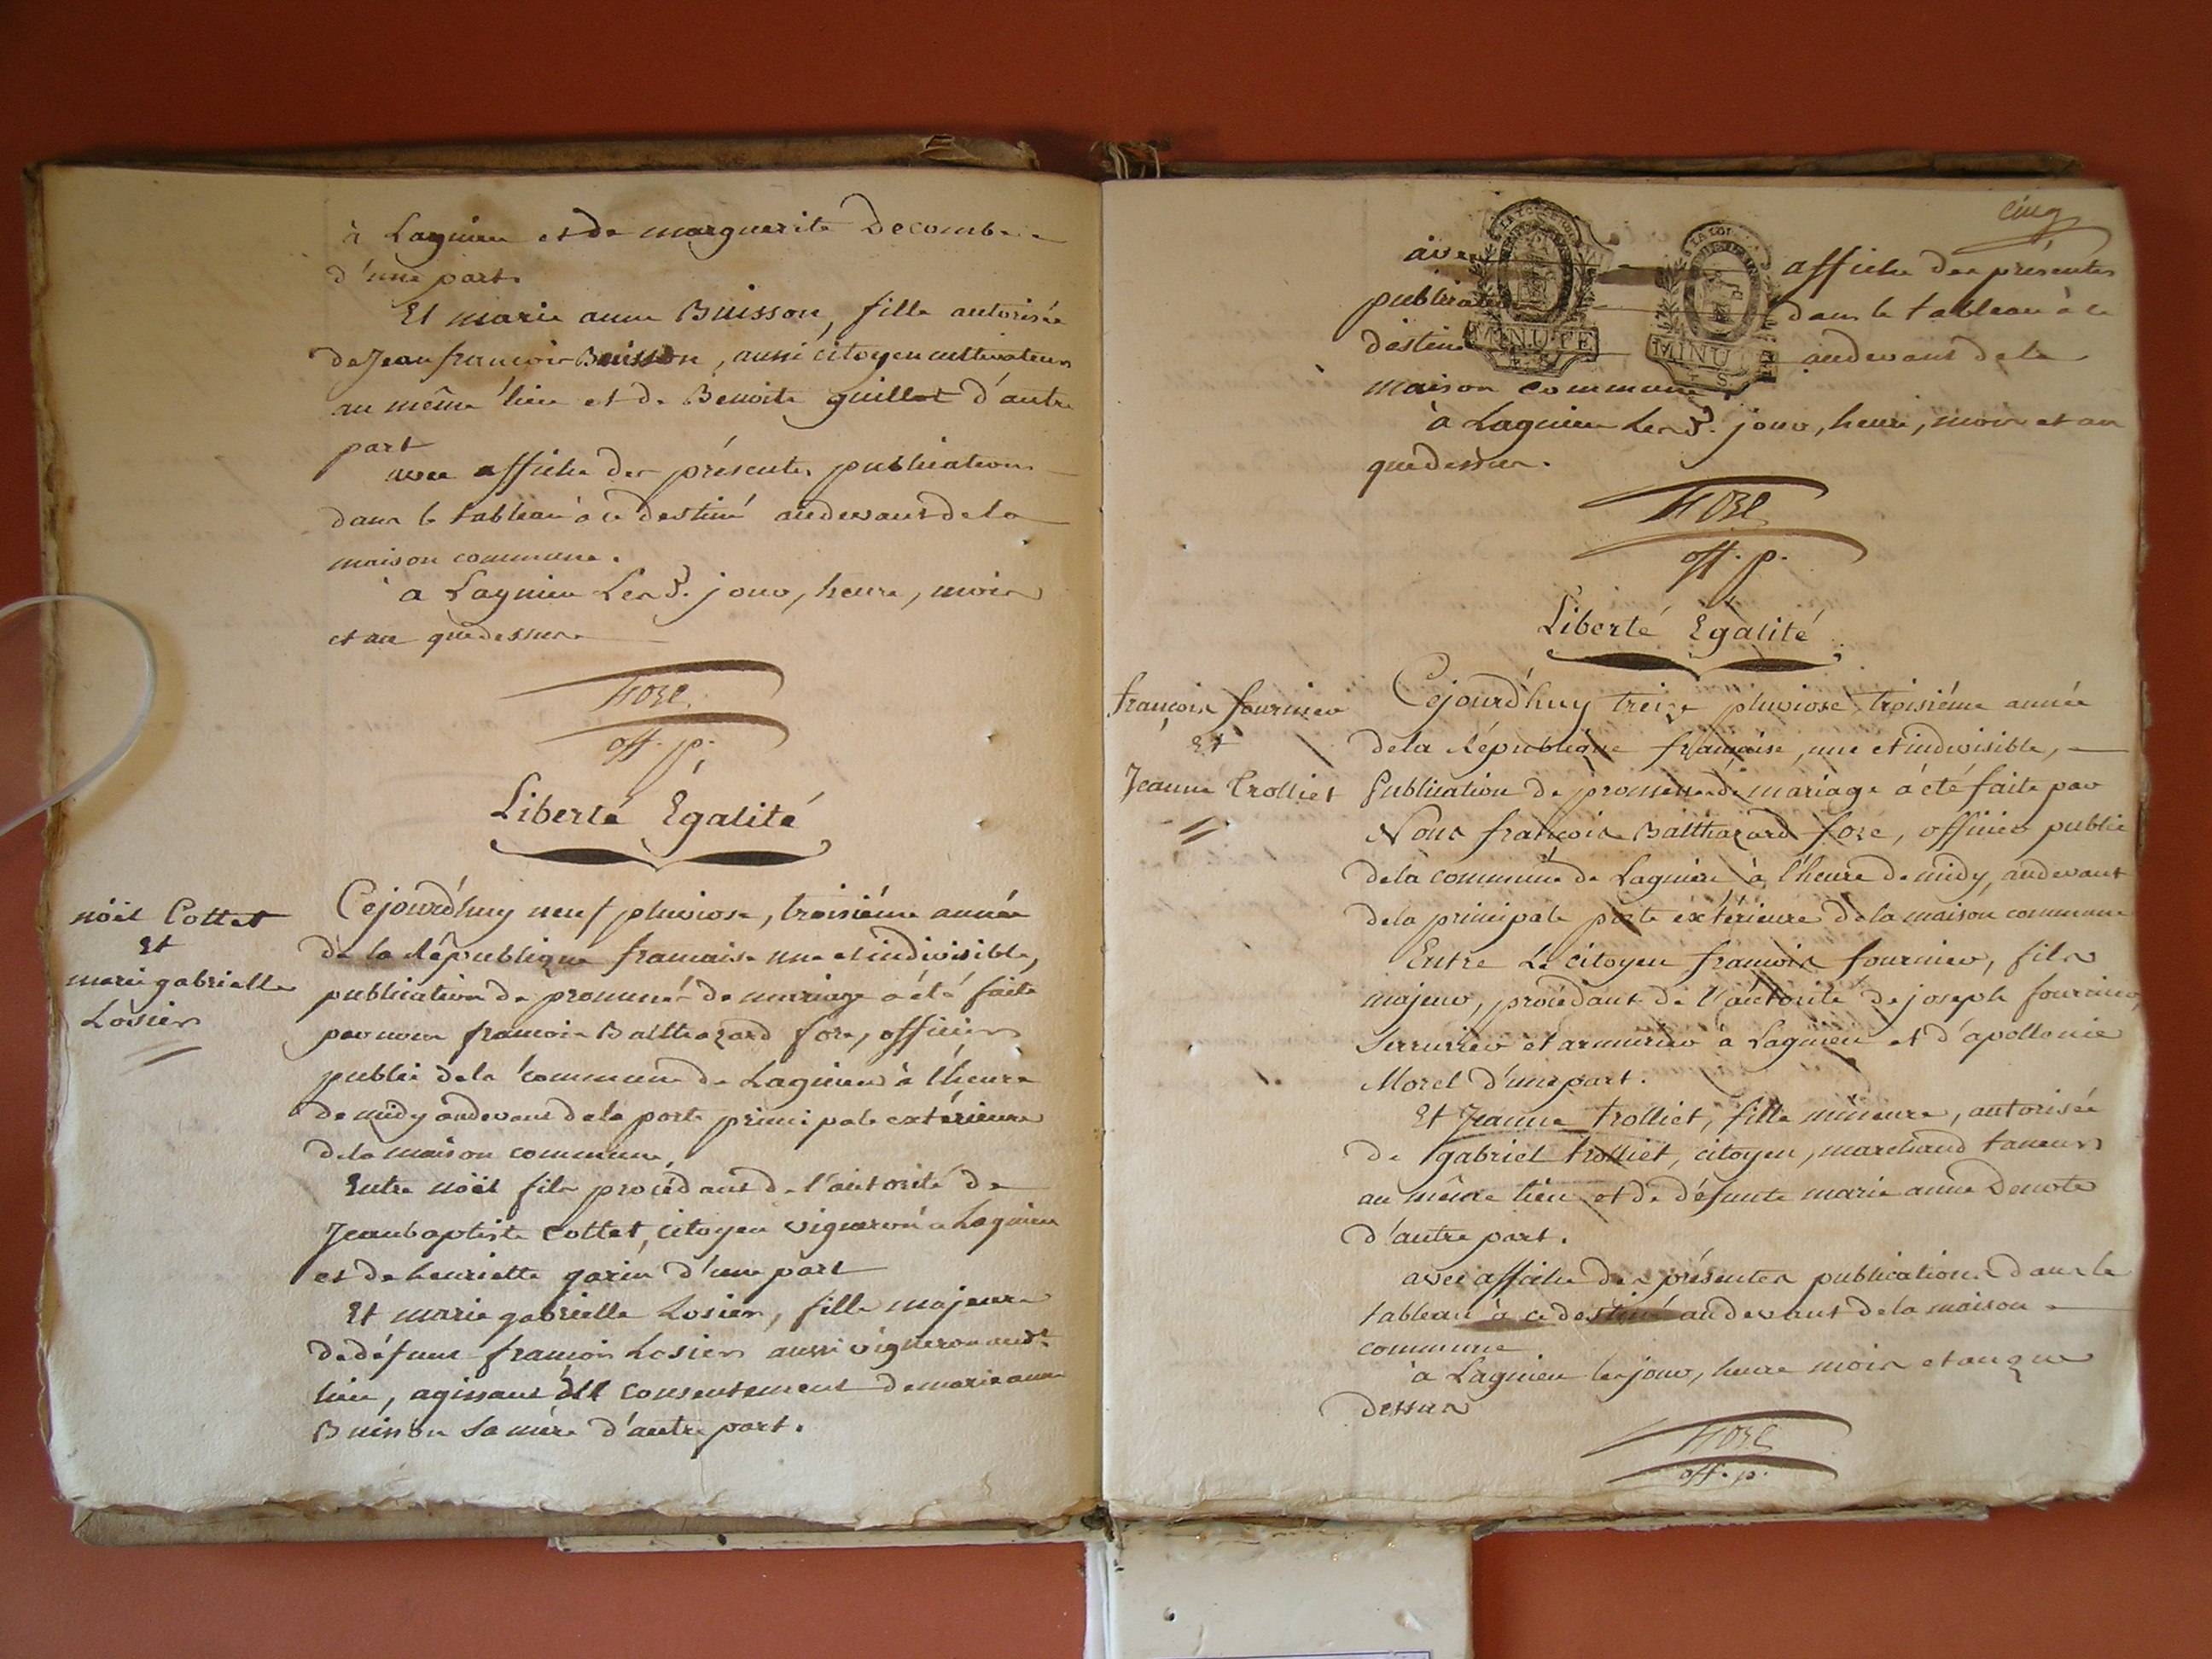 à Lagnieu et de marguerite Decombe
d'une part.
Et marie anne Buisson, fille autorisée
de Jean francois Buisson, aussi citoyen cultivateur
au même lieu et de Benoite guillot d'autre
part
avec affiche des présentes publications
dans le tableau à ce destiné audevant de la
maison commune.
à Lagnieu Les d. jour, heure, mois
et an que dessus
fore
off. p.
Liberté Egalité
nöel Cottet
Et
marie gabrielle
Losier
Cejourd'huy neuf pluviose, troisiéme année
de la République francaise une et indivisible,
publication de promesse de mariage a été faite
par nous francois Balthazard fore, officier
public de la commune de Lagnieu à l'heure
de midy audevant de la porte principale extérieure
de la maison commune,
Entre nöel fils procédant de l'autorité de
Jean baptiste Cottet, citoyen vigneron à Lagnieu
et de henriette garin d'une part
Et marie gabrielle Losier, fille majeure
de défunt francois Losier aussi vigneron aud.t
lieu, agissant du consentement de marie anne
Buisson sa mére d'autre part.
cinq
ave affiche des présentes
publica dans le tableau à ce
destiné audevant de la
maison commune.
à Lagnieu Les d. jour, heure, mois et an
que dessus.
fore
off. p.
Liberté Egalité
françois fournier
Et
Jeanne Trolliet
Cejourd'huy treize pluviose troisiéme année
de la République française, une et indivisible,
Publication de promesse de mariage a été faite par
Nous françois Balthazard fore, officier public
de la commune de Lagnieu à l'heure de midy, audevant
de la principale porte extérieure de la maison commune
Entre Le citoyen francois fournier, fils
majeur, procédant de l'autorité de joseph fournier,
Serrurier et armurier à Lagnieu et d'apollonie
Morel d'une part.
Et Jeanne trolliet, fille mineure, autorisée
de gabriel trolliet, citoyen, marchand taneur
au même lieu et de défunte marie anne Denote
d'autre part.
avec affiche des présentes publications dans le
tableau à ce destiné audevant de la maison
commune
à Lagnieu les jour, heure mois et an que
dessus
fore
off. p.
MINUTE
MINUTE